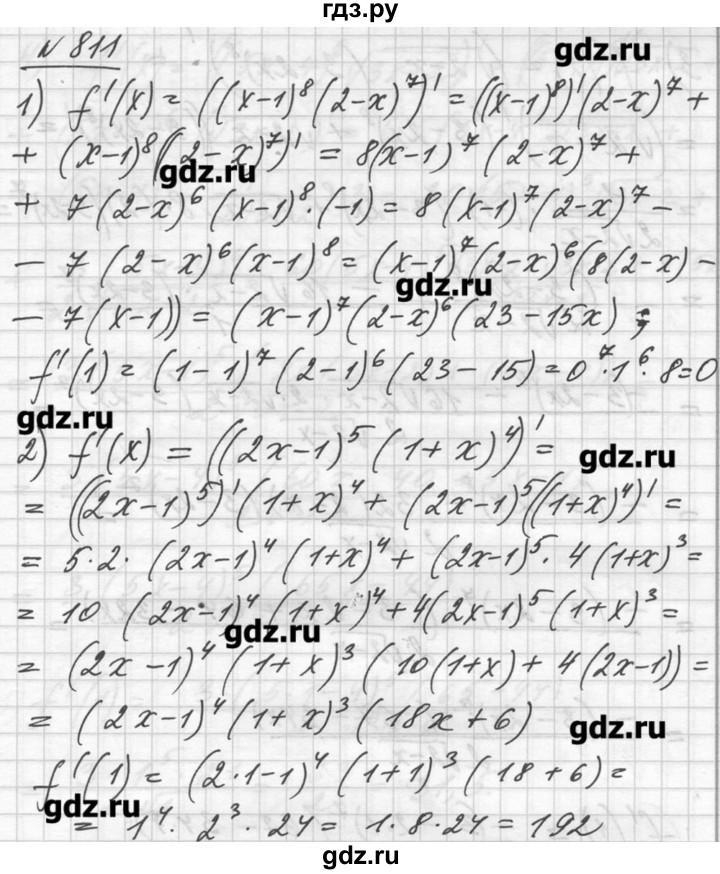 гдз.ру
№ 811
gdz.ru
1) f'(x) = ((x-1)⁸(2-x)⁷)' = ((x-1)⁸)'(2-x)⁷ +
+ (x-1)⁸((2-x)⁷)' = 8(x-1)⁷(2-x)⁷ +
gdz.ru
+ 7(2-x)⁶(x-1)⁸·(-1) = 8(x-1)⁷(2-x)⁷ -
- 7(2-x)⁶(x-1)⁸ = (x-1)⁷(2-x)⁶(8(2-x) -
gdz.ru
- 7(x-1)) = (x-1)⁷(2-x)⁶(23-15x);
f'(1) = (1-1)⁷(2-1)⁶(23-15) = 0⁷·1⁶·8=0
gdz.ru
2) f'(x) = ((2x-1)⁵(1+x)⁴)' =
gdz.ru
= ((2x-1)⁵)'(1+x)⁴ + (2x-1)⁵((1+x)⁴)' =
= 5·2·(2x-1)⁴(1+x)⁴ + (2x-1)⁵·4(1+x)³ =
= 10(2x-1)⁴(1+x)⁴+4(2x-1)⁵(1+x)³ =
gdz.ru
= (2x-1)⁴(1+x)³(10(1+x)+4(2x-1)) =
= (2x-1)⁴(1+x)³(18x+6)
gdz.ru
f'(1) = (2·1-1)⁴(1+1)³(18+6) =
gdz.ru
= 1⁴·2³·24 = 1·8·24 = 192
gdz.ru